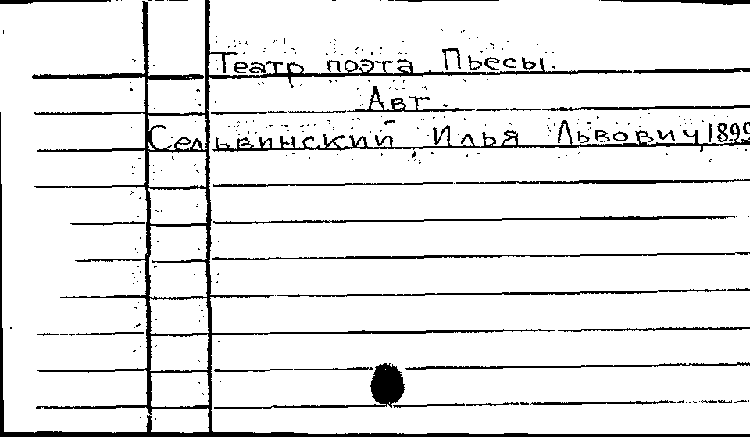 Театр поэта. Пьесы.
Авт.
Сельвинский, Илья Львович, 1899